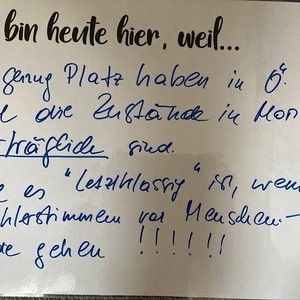 bin heute hier, weil...
genug Platz haben in Ö.
die Zustände in Mori
erträglich sind.
es "letztklassig" ist, wenn
hlerstimmen vor Menschen-
gehen !!!!!!